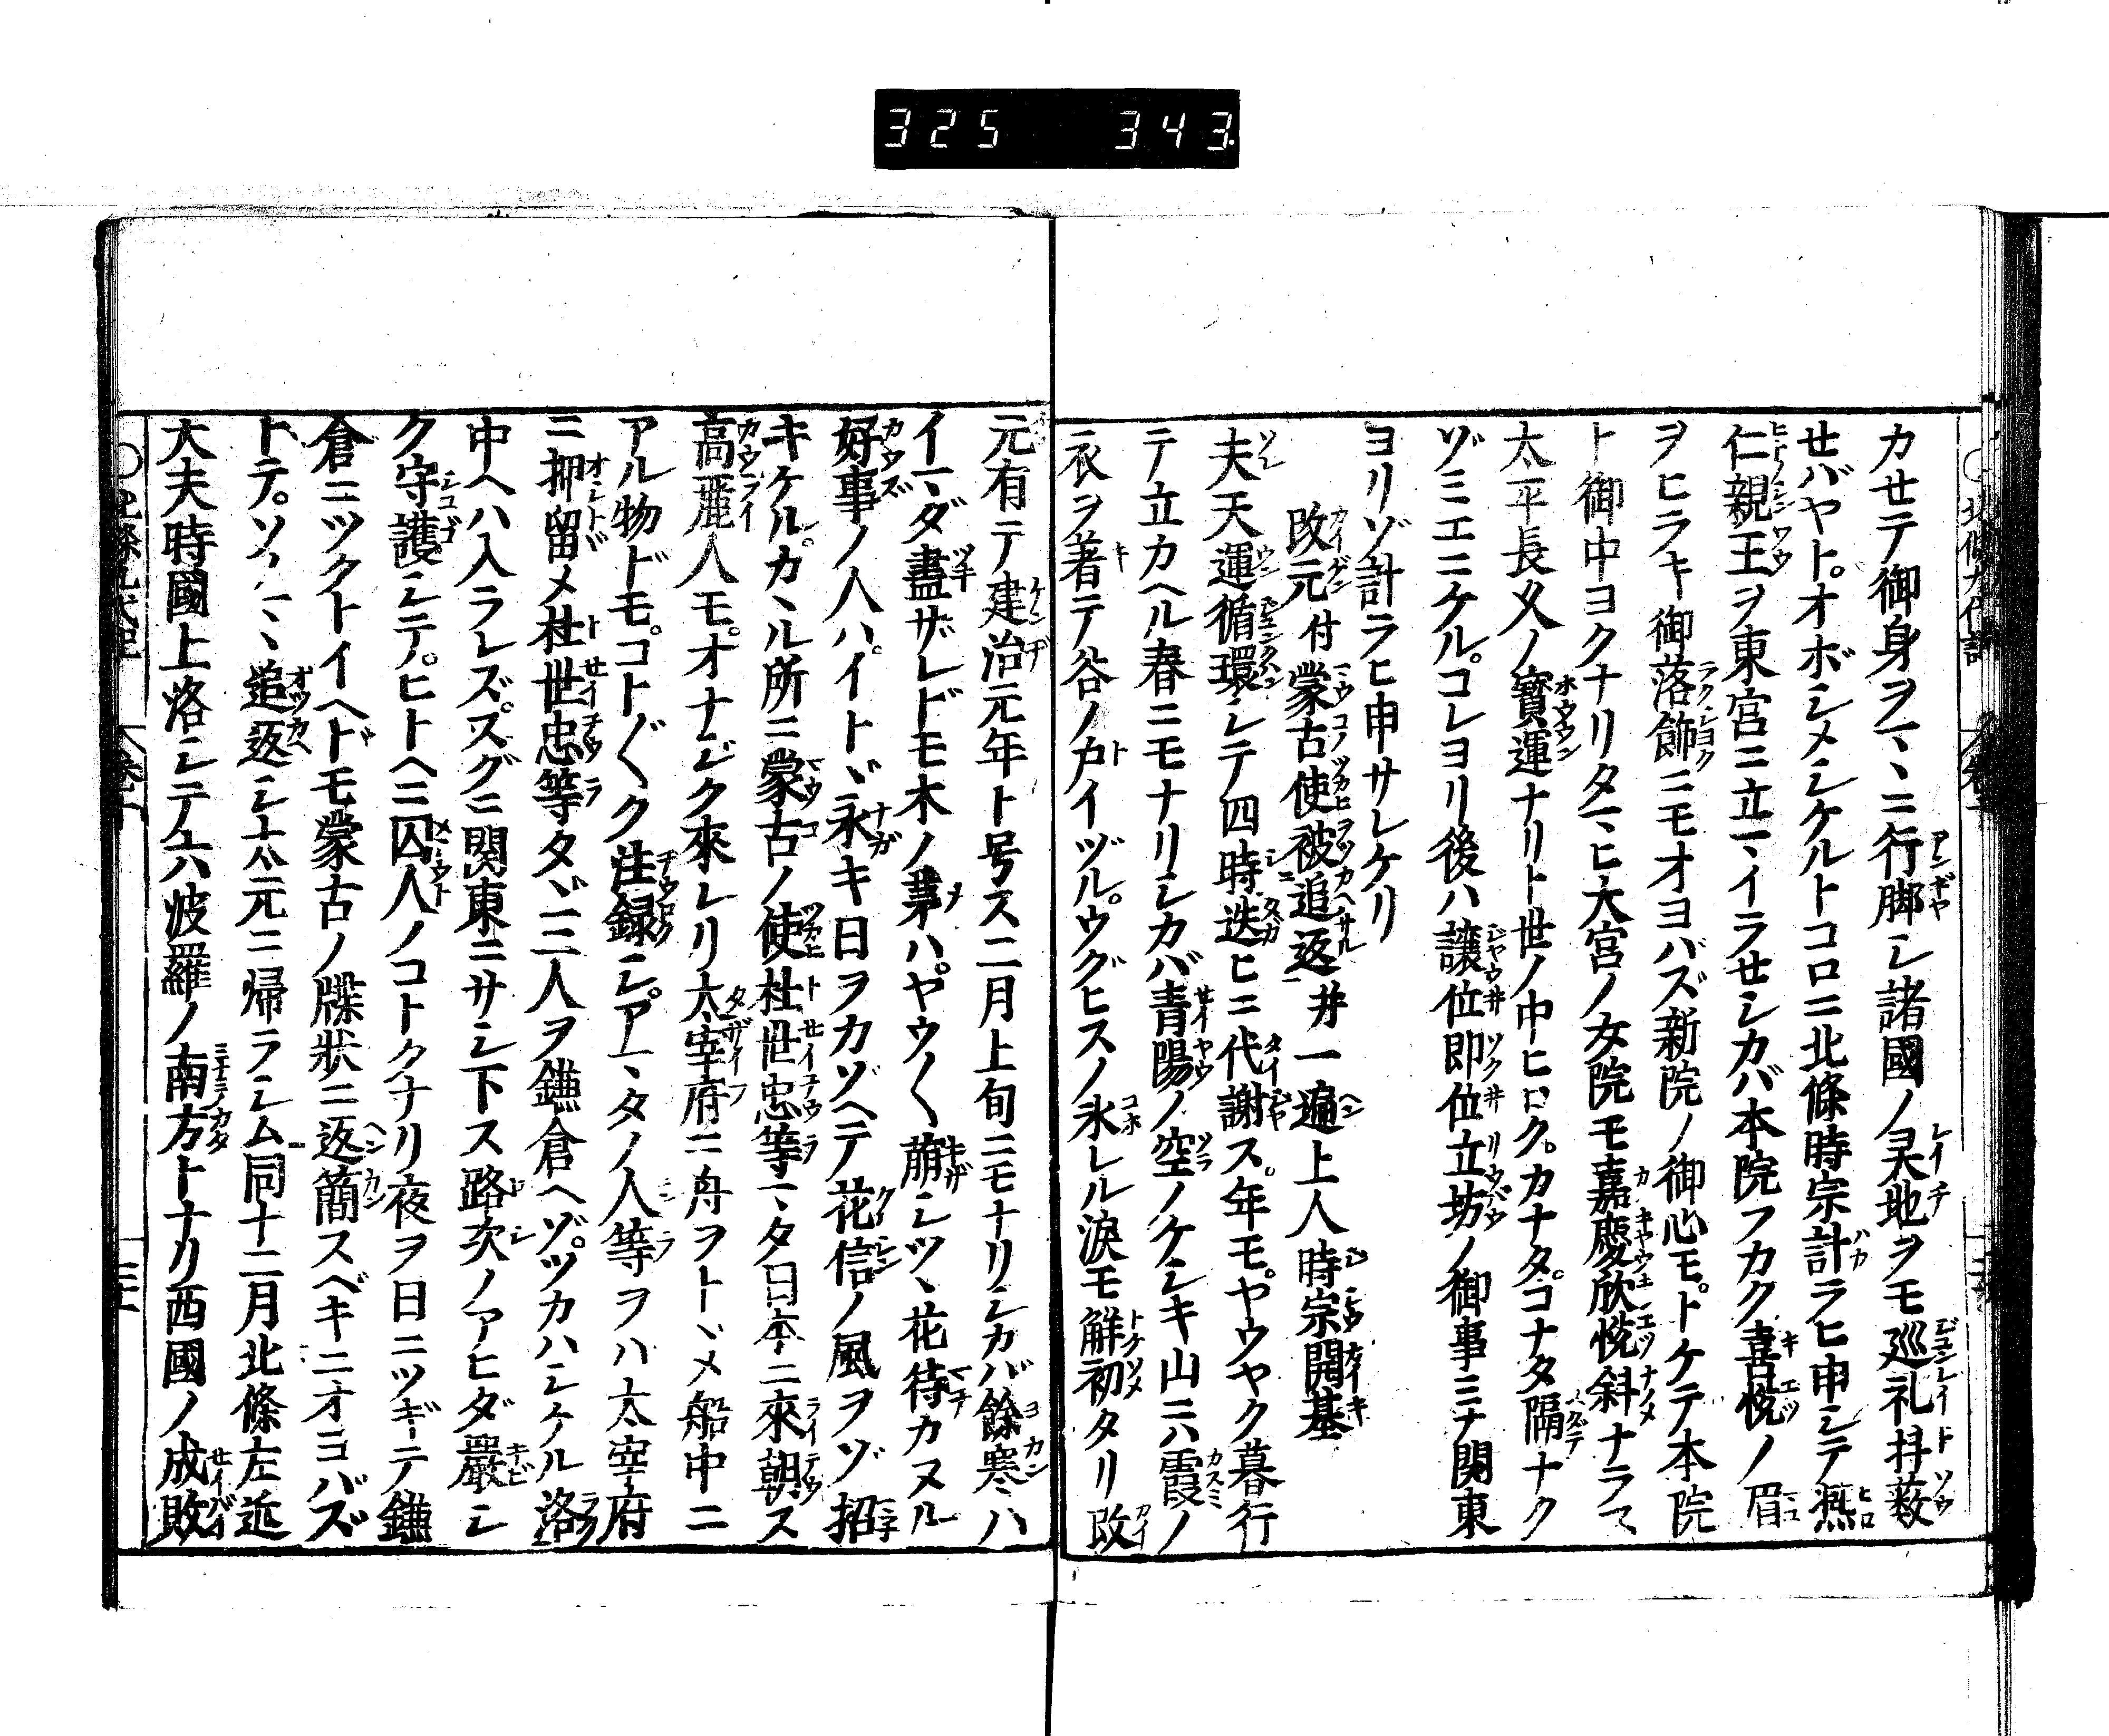 325 343
カセテ御身ヲマヽニ行脚シ諸國ノ灵地ヲモ巡礼抖薮
セバヤト。オボシメシケルトコロニ北條時宗計ラヒ申シテ熈
仁親王ヲ東宮ニ立マイラセシカバ本院フカク喜悦ノ眉
ヲヒラキ御落飾ニモオヨバズ新院ノ御心モ。トケテ本院
ト御中ヨクナリタマヒ大宮ノ女院モ嘉慶欣悦斜ナラマ
太平長久ノ寳運ナリト世ノ中ヒロク。カナタ。コナタ隔ナク
ゾミエニケル。コレヨリ後ハ譲位即位立坊ノ御事ミナ関東
ヨリゾ計ラヒ申サレケリ
改元付蒙古使被追返并一遍上人時宗開基
夫天運循環シテ四時迭ヒニ代謝ス。年モ。ヤウヤク暮行
テ立カヘル春ニモナリシカバ青陽ノ空ノケシキ山ニハ霞ノ
衣ヲ著テ谷ノ戸イヅル。ウグヒスノ氷レル涙モ解初タリ改
元有テ建治元年ト号ス二月上旬ニモナリシカバ餘寒ハ
イマダ盡ザレドモ木ノ芽ハ。ヤウ〱萠シツヽ花待カヌル
好事ノ人ハ。イトヾ永キ日ヲカゾヘテ花信ノ風ヲゾ招
キケル。カヽル所ニ蒙古ノ使杜世忠等マタ日本ニ來朝ス
高麗人モ。オナジク來レリ太宰府ニ舟ヲトヾメ船中ニ
アル物ドモ。コト〲ク注録シ。アマタノ人等ヲハ太宰府
ニ押留メ杜世忠等タヾ三人ヲ鎌倉ヘゾ。ツカハシケル洛
中ヘハ入ラレズ。スグニ関東ニサシ下ス路次ノアヒダ嚴シ
ク守護シテ。ヒトヘニ囚人ノコトクナリ夜ヲ日ニツギテ鎌
倉ニツクトイヘドモ蒙古ノ牒状ニ返簡スベキニオヨバズ
トテ。ソノマヽ追返シ大元ニ帰ラシム同十二月北條左近
大夫時國上洛シテ六波羅ノ南方トナリ西國ノ成敗